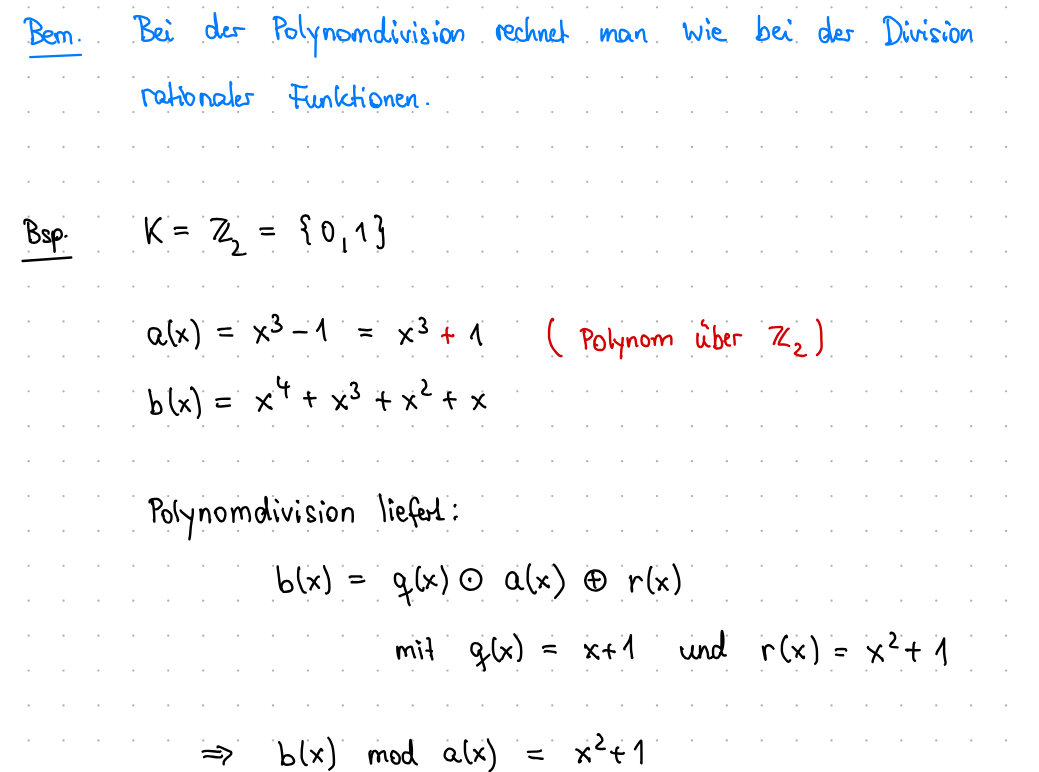 Bem. Bei der Polynomdivision rechnet man wie bei der Division
rationaler Funktionen.
Bsp. K = ℤ₂ = {0,1}
a(x) = x³ - 1 = x³ + 1 (Polynom über ℤ₂)
b(x) = x⁴ + x³ + x² + x
Polynomdivision liefert:
b(x) = q(x) ⊙ a(x) ⊕ r(x)
mit q(x) = x+1 und r(x) = x² + 1
⇒ b(x) mod a(x) = x² + 1